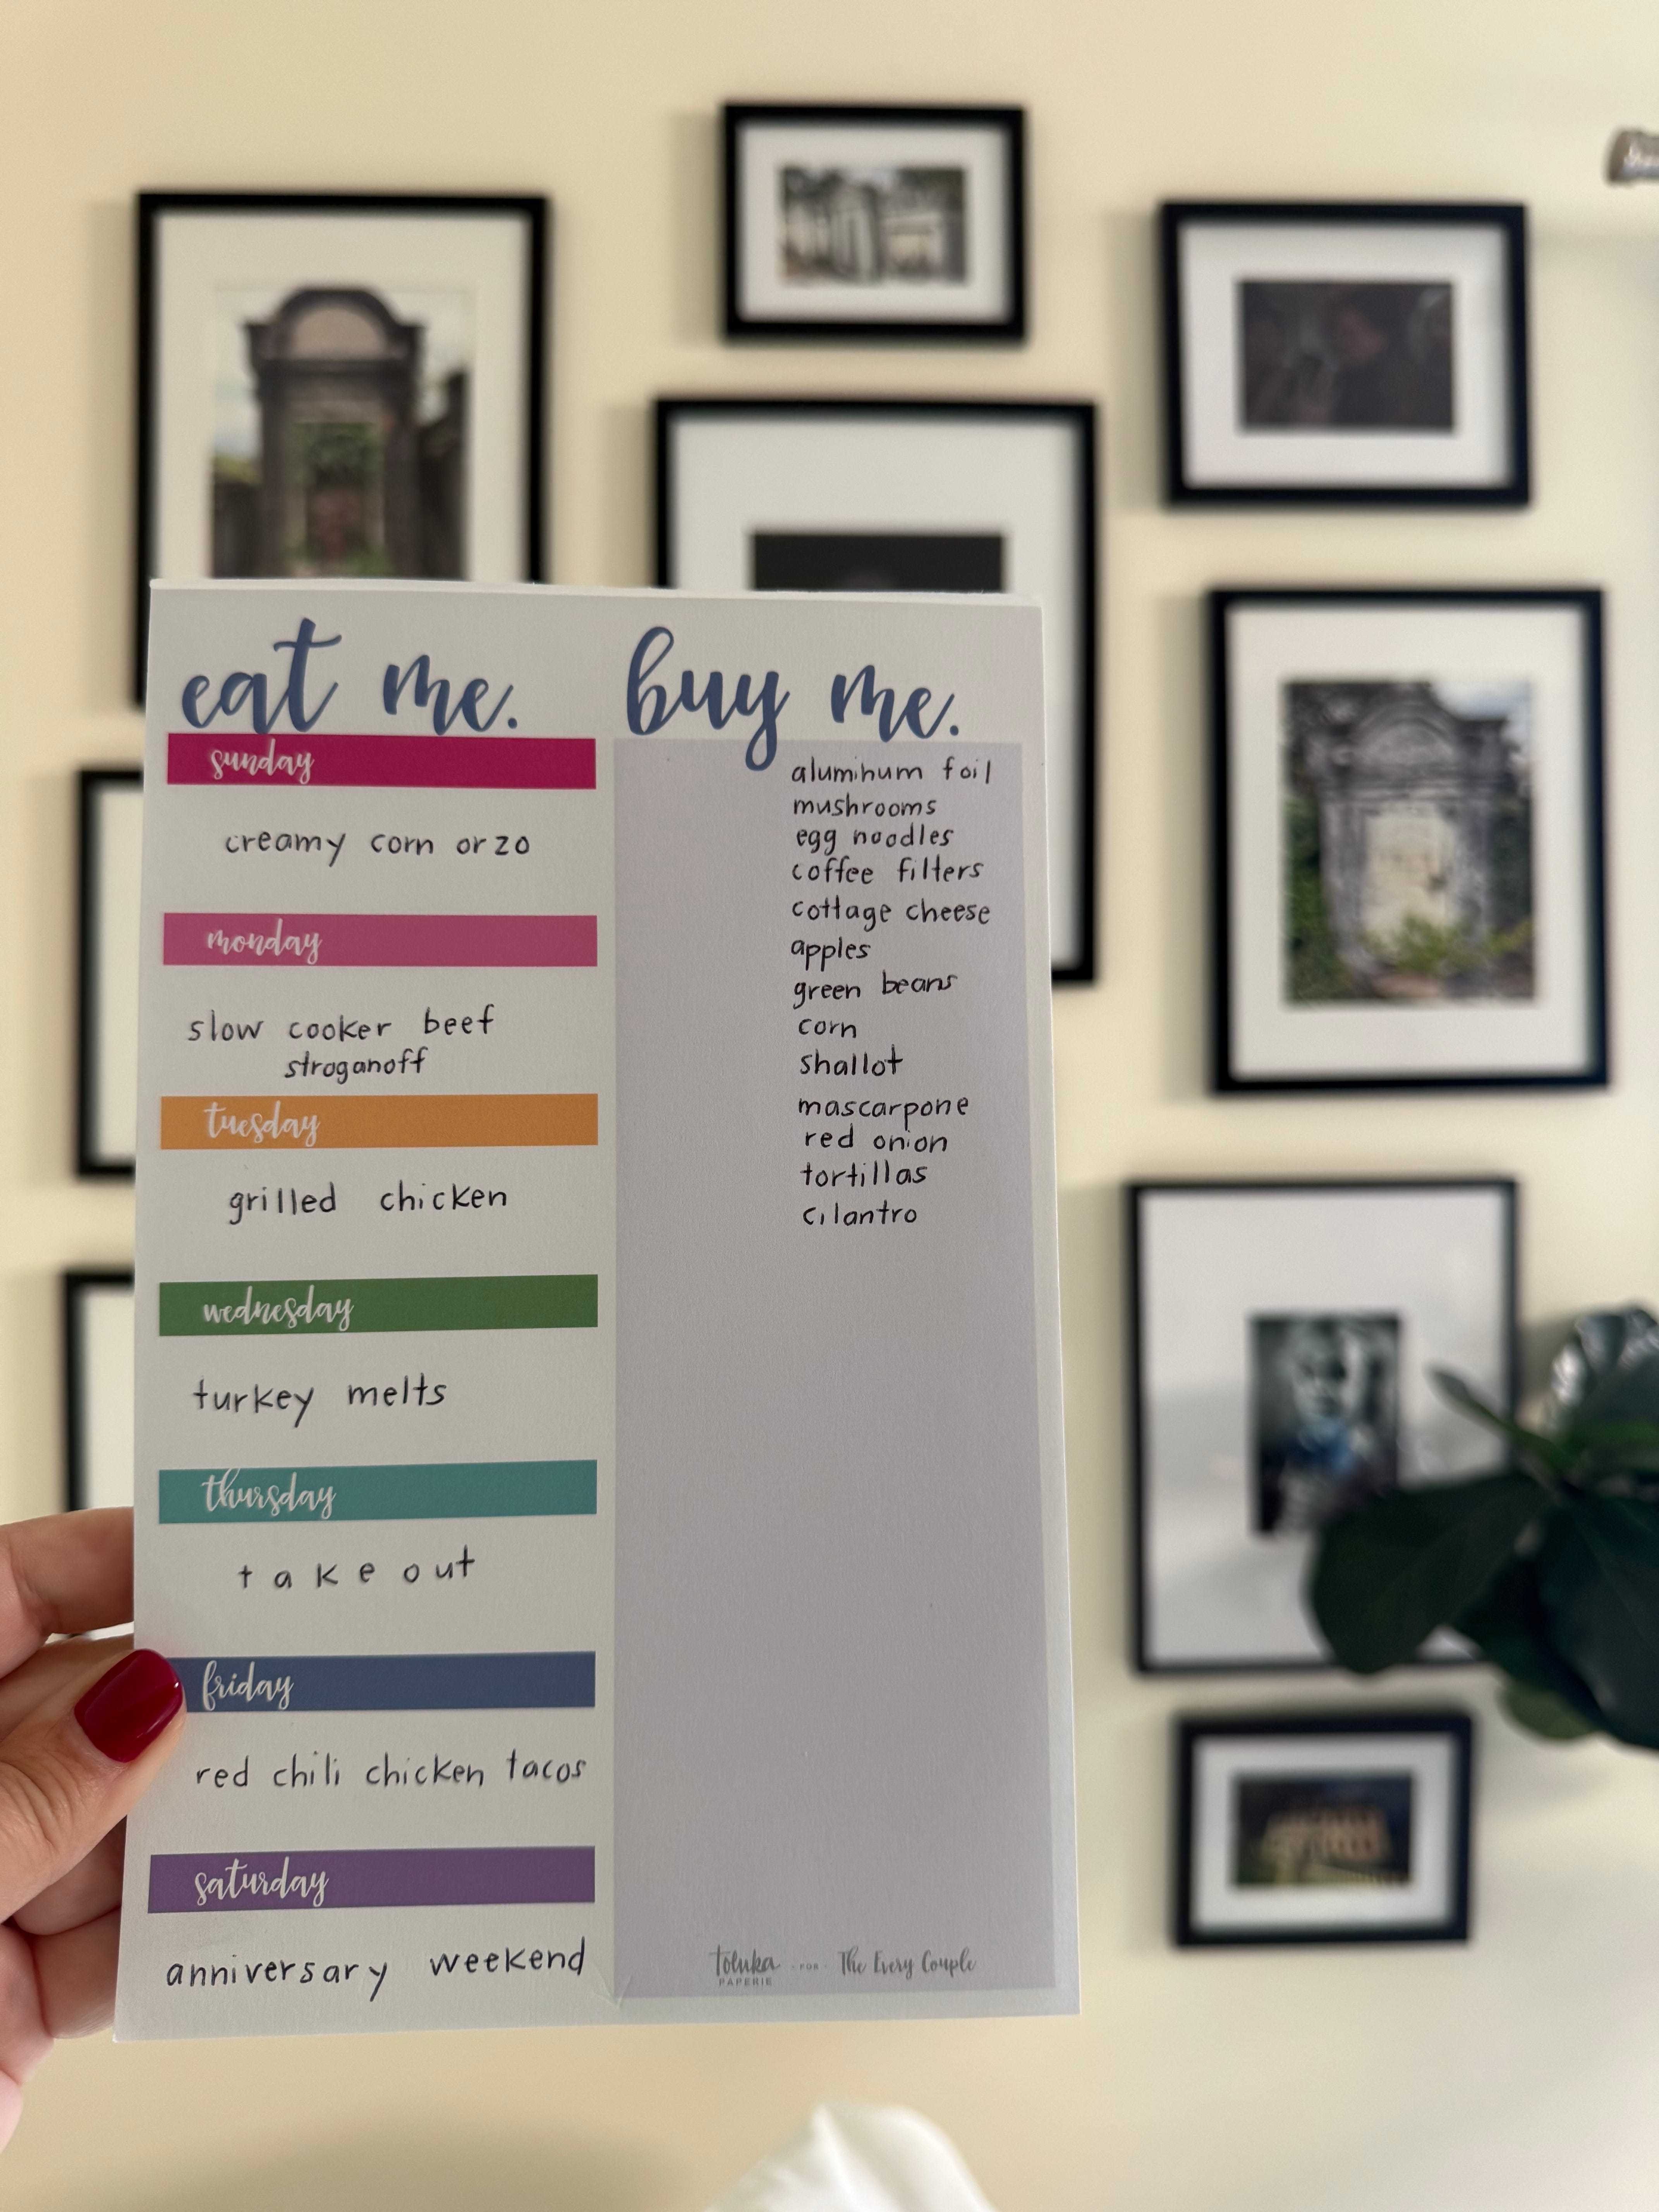 eat me.
sunday
creamy corn orzo
monday
slow cooker beef
stroganoff
tuesday
grilled chicken
wednesday
turkey melts
thursday
takeout
friday
red chili chicken tacos
saturday
anniversary weekend
buy me.
aluminum foil
mushrooms
egg noodles
coffee filters
cottage cheese
apples
green beans
corn
shallot
mascarpone
red onion
tortillas
cilantro
toluka - FOR - The Every Couple
PAPERIE